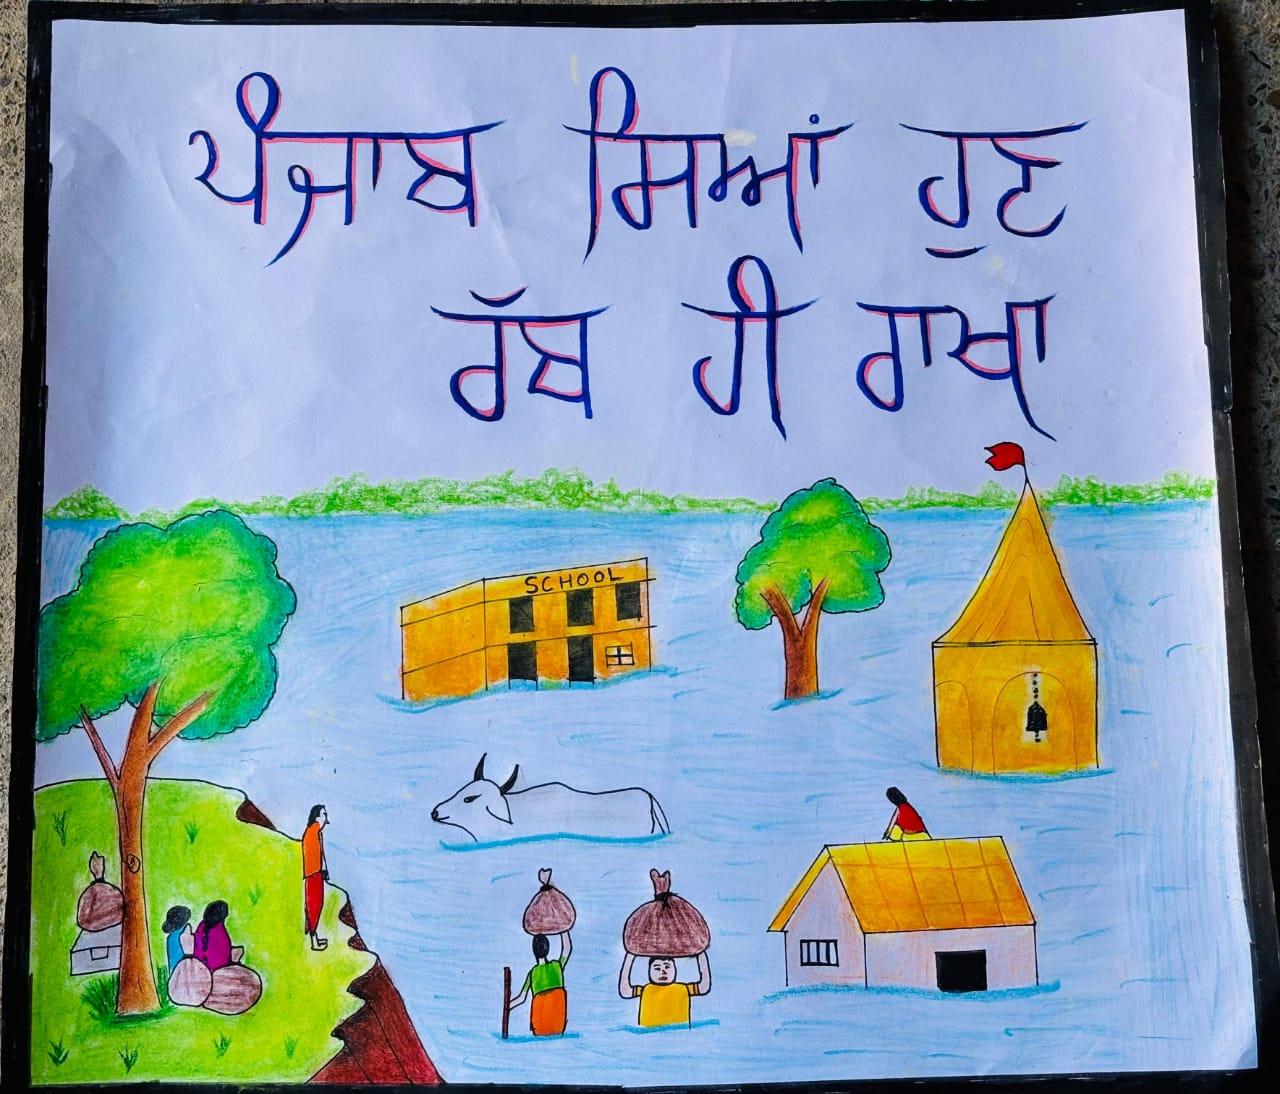 ਪੰਜਾਬ ਸਿਆਂ ਹੁਣ
ਰੱਬ ਹੀ ਰਾਖਾ
SCHOOL